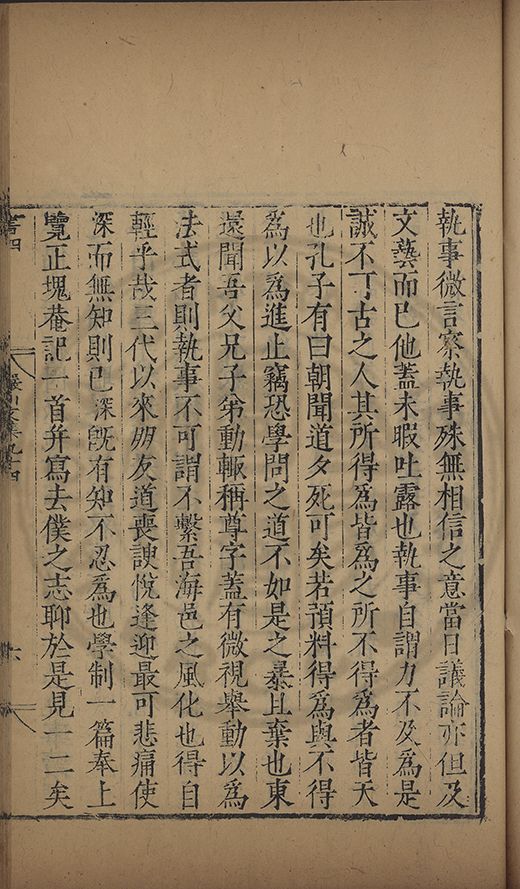 執事微言察執事殊無相信之意當日議論亦但及
文藝而已他蓋未暇吐露也執事自謂力不及為是
誠不可古之人其所得為皆為之所不得為者皆天
也孔子有曰朝聞道夕死可矣若預料得為與不得
為以為進止竊恐學問之道不如是之暴且棄也東
還聞吾父兄子弟動輒稱尊字蓋有微視舉動以為
法式者則執事不可謂不繫吾海邑之風化也得自
輕乎哉三代以來朋友道喪諛悅逢迎最可悲痛使
深而無知則已深旣有知不忍為也學制一篇奉上
覽正塊菴記一首并寫去僕之志聊於是見一二矣
書四
六